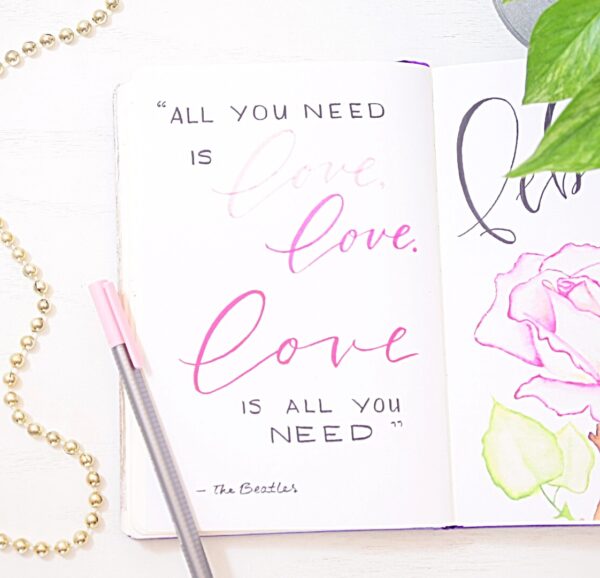 “ALL YOU NEED
IS love,
love.
love
IS ALL YOU
NEED ”
– The Beatles